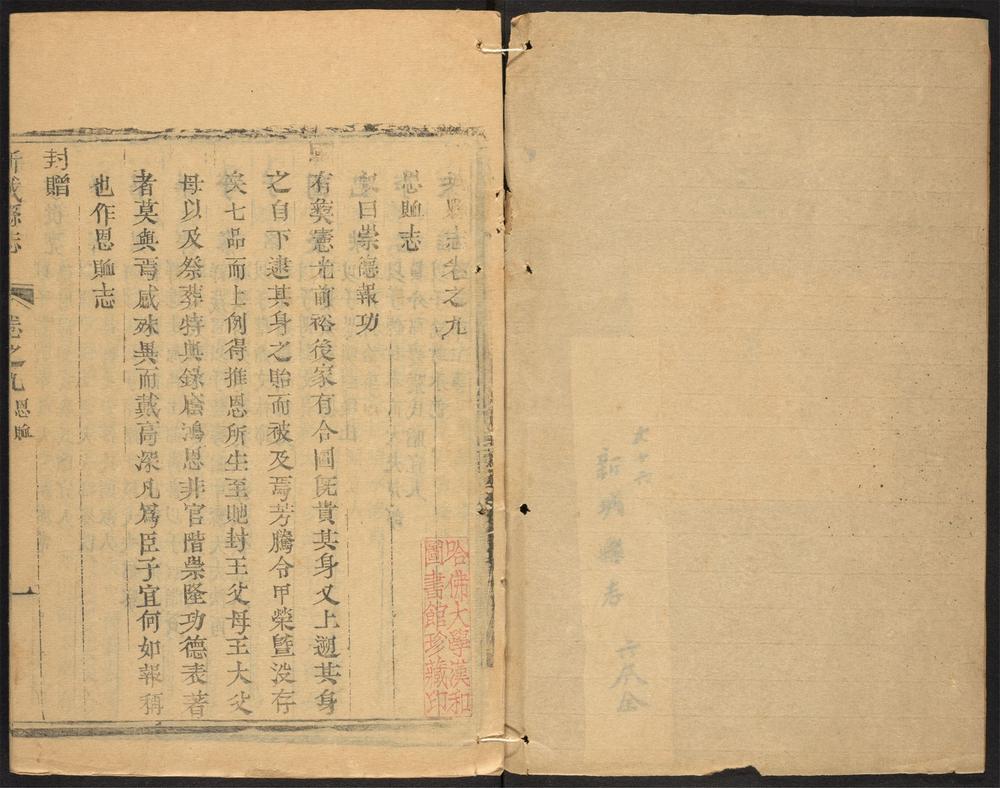 縣志卷之九
恩賉志
曰崇德報功
有奕憲光前裕後家有合圖旣貴其身又上遡其身
之自下逮其身之貽而被及焉芳騰令甲榮曁沒存
矣七品而上例得推恩所生至貤封王父母王大父
母以及祭葬特典錄廕鴻恩非官階崇隆功德表著
者莫與焉感殊異而戴高深凡爲臣子宜何如報稱
也作恩賉志
封贈
新城縣志
卷之九 恩賉
一
哈佛大學漢和
圖書館珍藏印
新城縣志